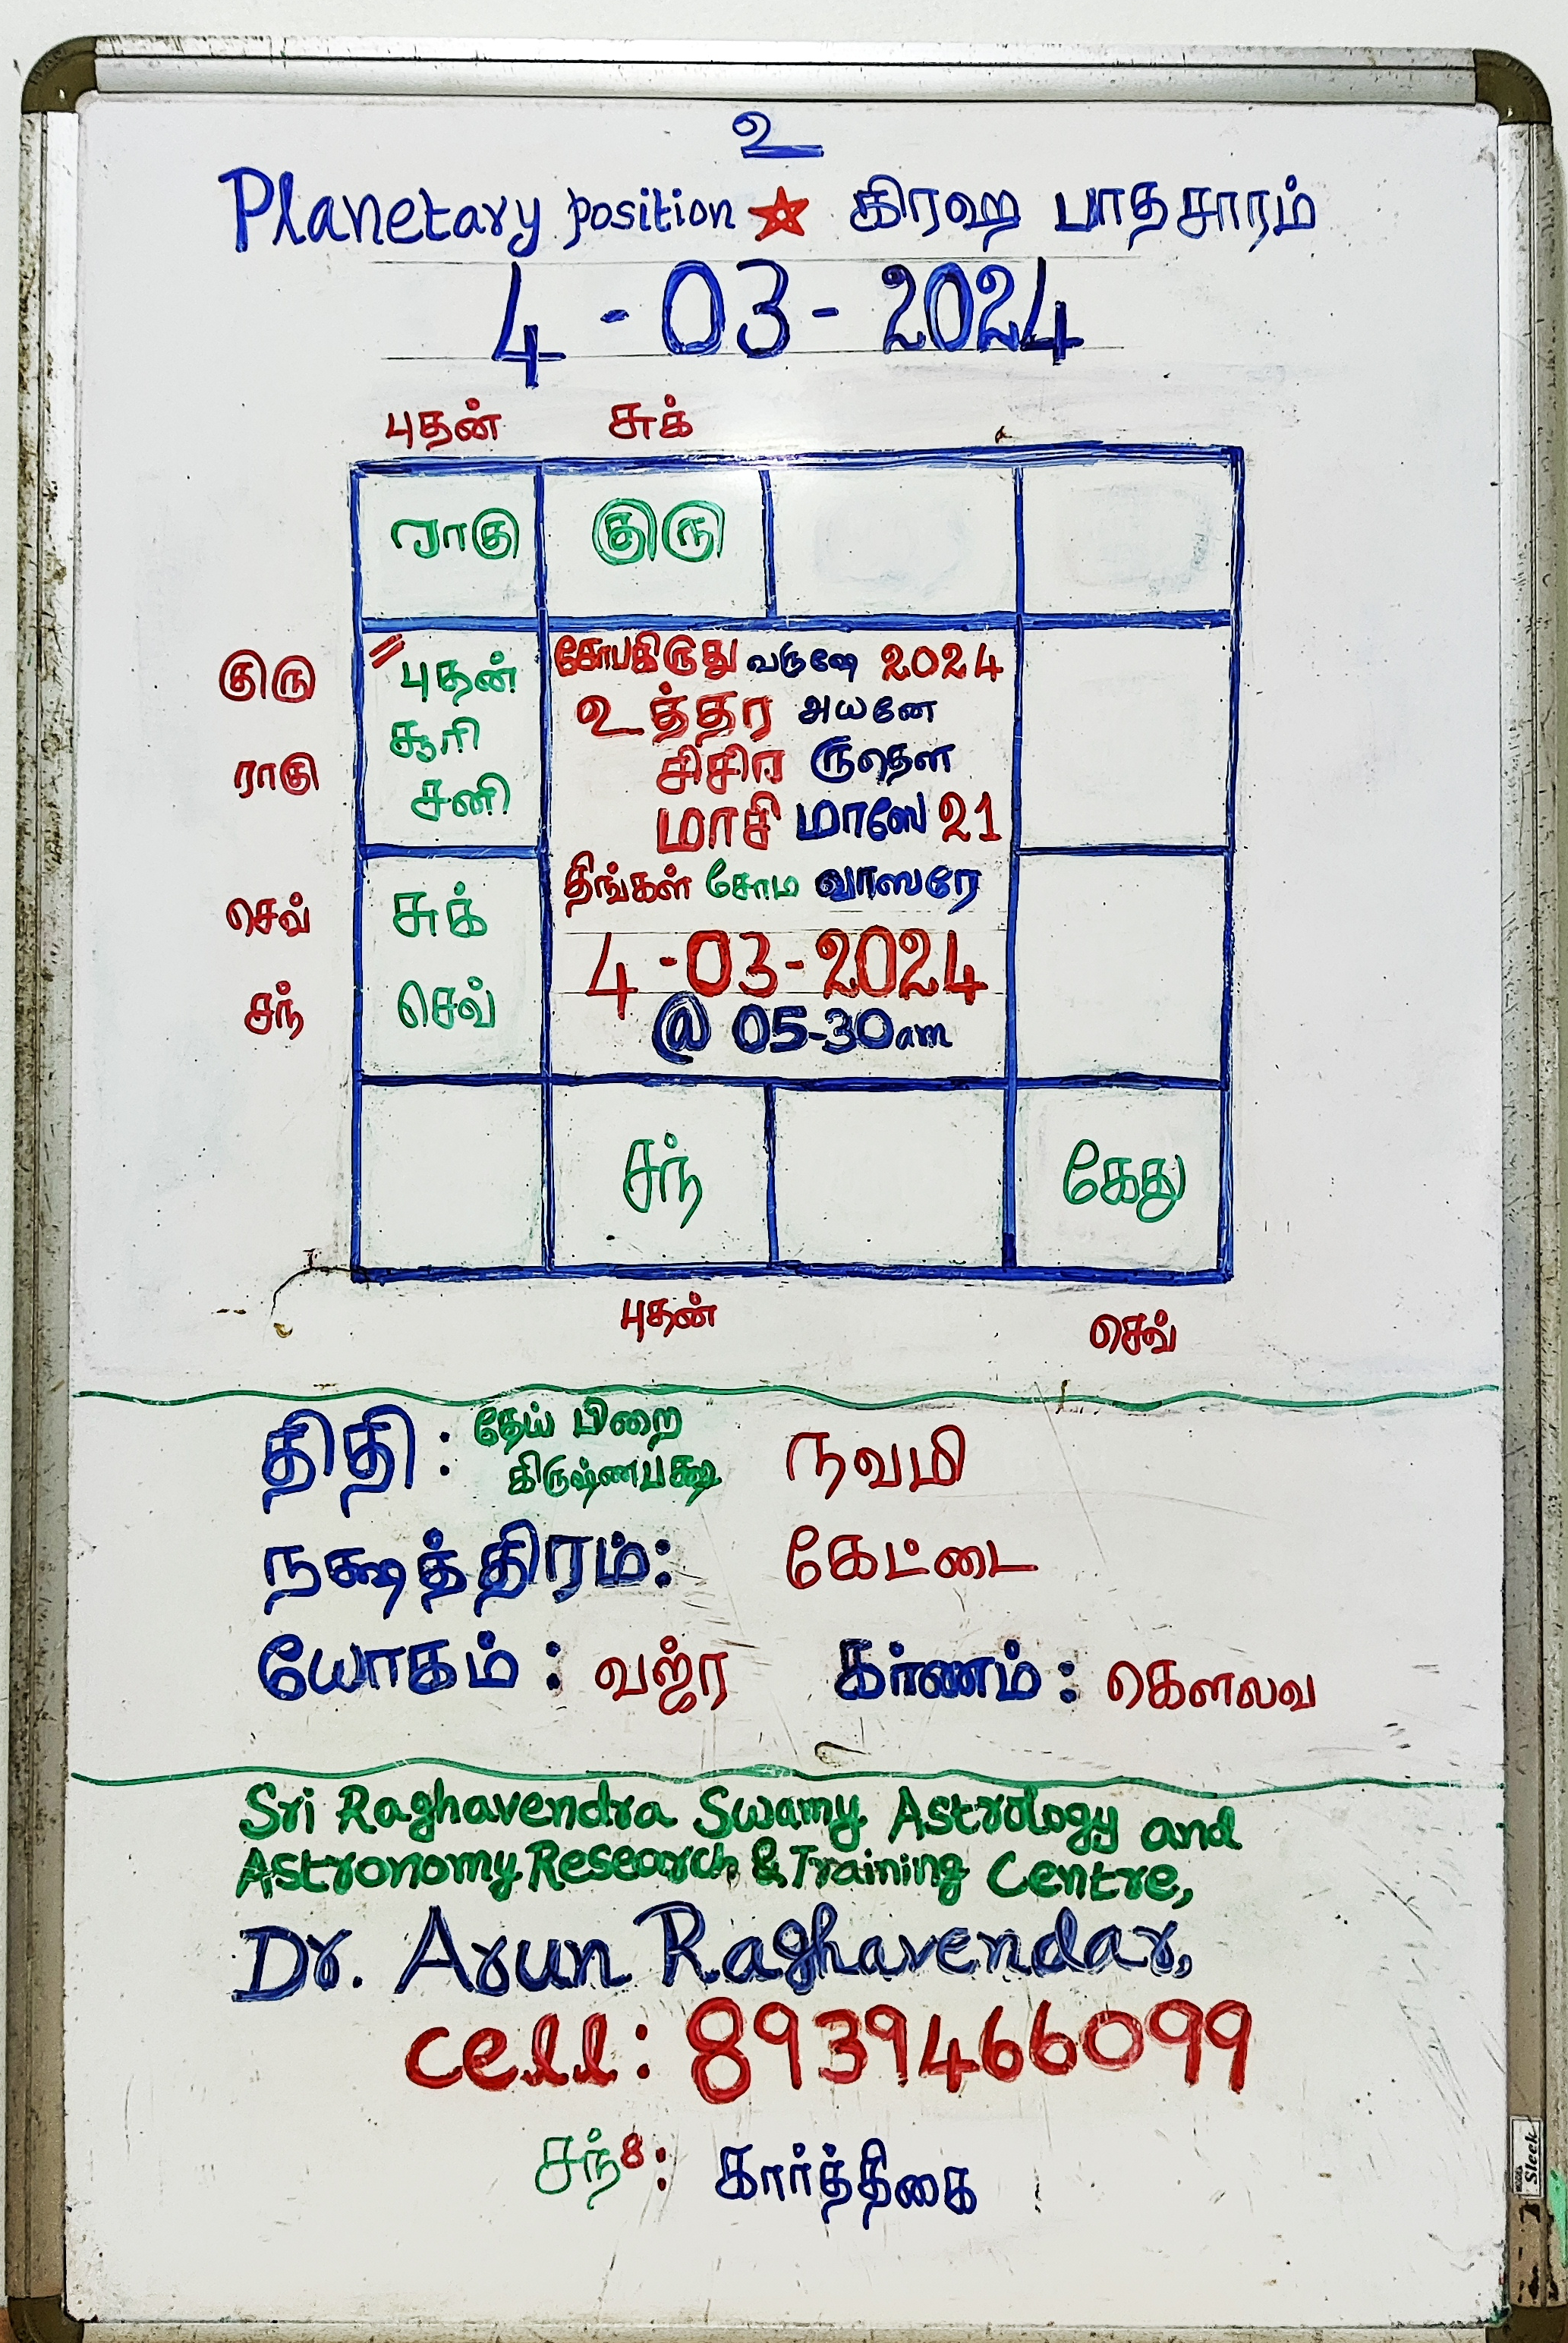 உ
Planetary position ☆ கிரஹ பாதசாரம்
4 - 03 - 2024
புதன் சுக்
ராகு குரு
குரு
ராகு
செவ்
சந்
புதன்
சூரி
சனி
சுக்
செவ்
சோபகிருது வருஷே 2024
உத்தர அயனே
சிசிர ருதௌ
மாசி மாஸே 21
திங்கள் சோம வாஸரே
4 - 03 - 2024
@ 05-30am
சந் கேது
புதன் செவ்
திதி : தேய் பிறை நவமி
கிருஷ்ணபக்ஷ
நக்ஷத்திரம்: கேட்டை
யோகம் : வஜ்ர கர்ணம் : கௌலவ
Sri Raghavendra Swamy Astrology and
Astronomy Research & Training Centre,
Dr. Arun Raghavendar,
cell: 8939466099
சந்8: கார்த்திகை
Sleek